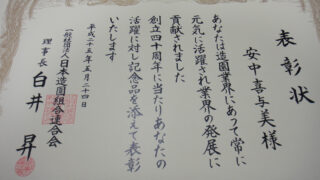 表彰状
安中喜与美様
あなたは造園業界にあって常に
元気に活躍され業界の発展に
貢献されました
創立四十周年に当たりあなたの
活躍に対し記念品を添えて表彰
いたします
平成二十五年五月二十四日
一般社団法人日本造園組合連合会
理事長 白井昇